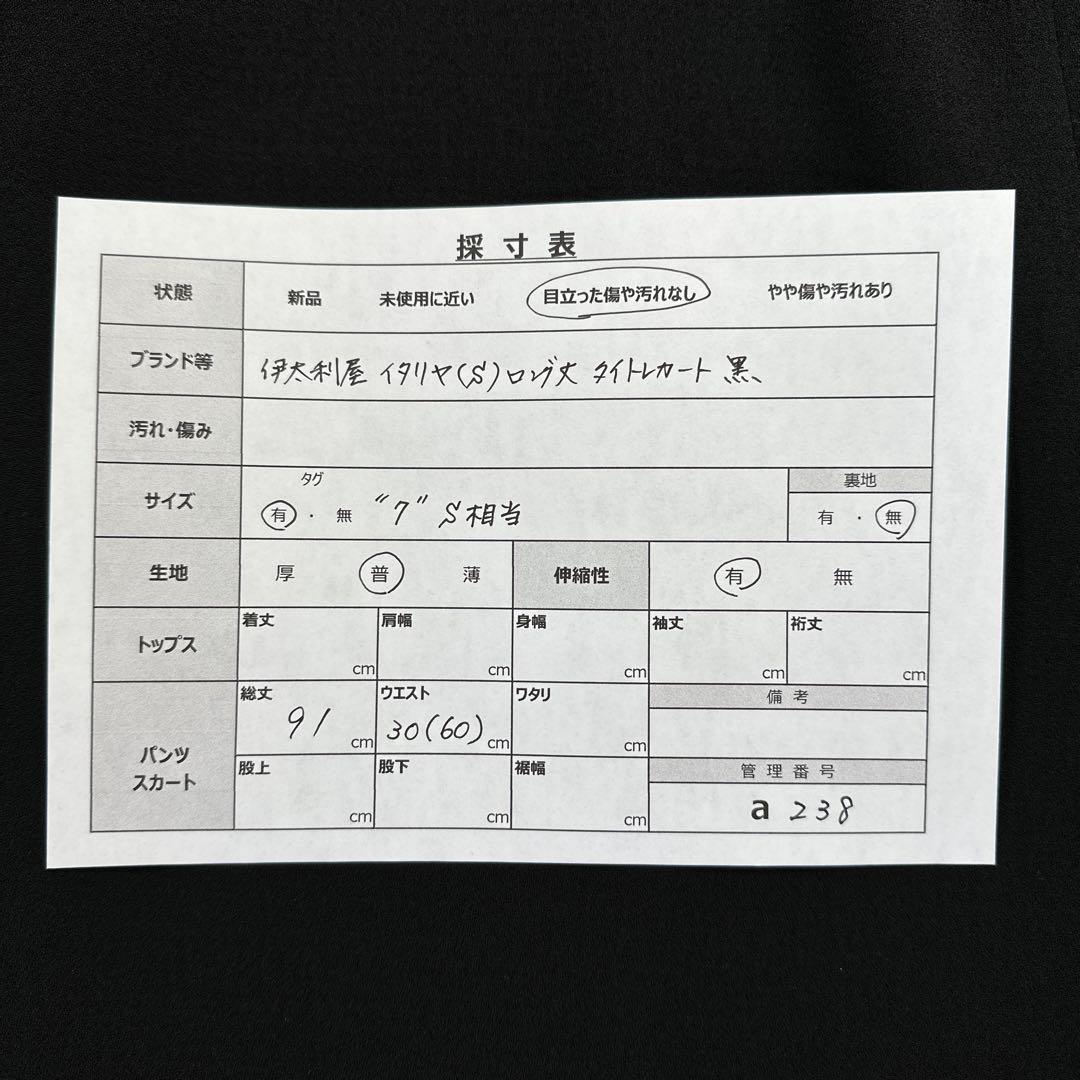 採寸表
状態 新品 未使用に近い 目立った傷や汚れなし やや傷や汚れあり
ブランド等 伊太利屋 イタリヤ(S)ロング丈 タイトスカート 黒
汚れ・傷み
サイズ タグ 有 ・ 無 “7” S相当 裏地 有 ・ 無
生地 厚 普 薄 伸縮性 有 無
トップス 着丈 cm 肩幅 cm 身幅 cm 袖丈 cm 裄丈 cm
パンツ スカート 総丈 91 cm ウエスト 30(60) cm ワタリ cm 備考
股上 cm 股下 cm 裾幅 cm 管理番号 a 238